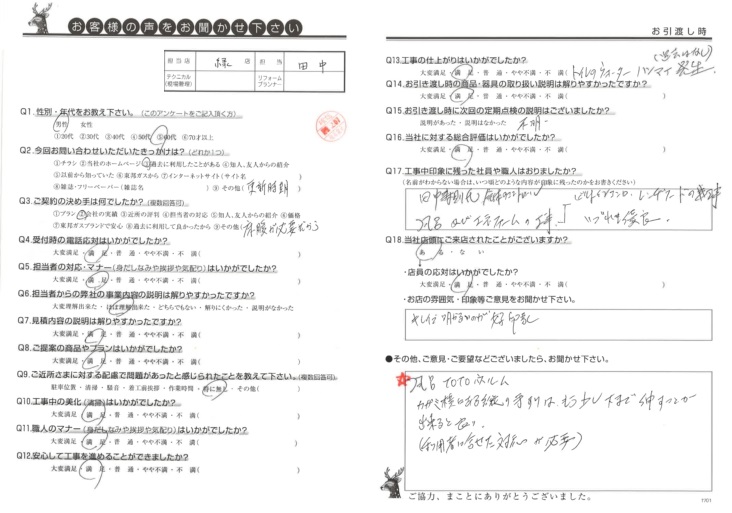 お客様の声をお聞かせ下さい
担当店 緑店 担当 田中
テクニカル(現場管理) リフォームプランナー
Q1.性別・年代をお教え下さい。(このアンケートをご記入頂く方)
男性 女性
①20代 ②30代 ③40代 ④50代 ⑤60代 ⑥70才以上
Q2.今回お問い合わせいただいたきっかけは?(どれか1つ)
①チラシ ②当社のホームページ ③過去に利用したことがある ④知人、友人からの紹介
⑤以前から知っていた ⑥東邦ガスから ⑦インターネットサイト(サイト名 )
⑧雑誌・フリーペーパー(雑誌名 ) ⑨その他(更新時期)
Q3.ご契約の決め手は何でしたか?(複数回答可)
①プラン ②会社の実績 ③近所の評判 ④担当者の対応 ⑤知人、友人からの紹介 ⑥価格
⑦東邦ガスブランドで安心 ⑧過去に利用して良かったから ⑨その他(
Q4.受付時の電話応対はいかがでしたか?
大変満足・満 足・普 通・やや不満・不 満( )
Q5.担当者の対応・マナー(身だしなみや挨拶や気配り)はいかがでしたか?
大変満足・満 足・普 通・やや不満・不 満( )
Q6.担当者からの弊社の事業内容の説明は解りやすかったですか?
大変理解出来た・ほぼ理解出来た・どちらでもない・解りにくかった・説明がなかった
Q7.見積内容の説明は解りやすかったですか?
大変満足・満 足・普 通・やや不満・不 満( )
Q8.ご提案の商品やプランはいかがでしたか?
大変満足・満 足・普 通・やや不満・不 満( )
Q9.ご近所さまに対する配慮で問題があったと感じられたことを教えて下さい。(複数回答可)
駐車位置・清掃・騒音・着工前挨拶・作業時間・特に無し・その他( )
Q10.工事中の美化(清掃)はいかがでしたか?
大変満足・満 足・普 通・やや不満・不 満( )
Q11.職人のマナー(身だしなみや挨拶や気配り)はいかがでしたか?
大変満足・満 足・普 通・やや不満・不 満( )
Q12.安心して工事を進めることができましたか?
大変満足・満 足・普 通・やや不満・不 満( )
お引渡し時
Q13.工事の仕上がりはいかがでしたか?
(過去はなし)
大変満足・満 足・普 通・やや不満・不 満(トイレのウォーターハンマイ発生.
Q14.お引き渡し時の商品・器具の取り扱い説明は解りやすかったですか?
大変満足・満 足・普 通・やや不満・不 満( )
Q15.お引き渡し時に次回の定期点検の説明はございましたか?
説明があった・説明はなかった 不明
Q16.当社に対する総合評価はいかがでしたか?
大変満足・満 足・普 通・やや不満・不 満( )
Q17.工事中印象に残った社員や職人はおりましたか?
(名前がわからない場合は、いつ頃どのような内容が印象に残ったのかをお書きください)
風呂及び
Q18.当社店頭にご来店されたことがございますか?
あ る・な い
・店員の応対はいかがでしたか?
大変満足・満 足・普 通・やや不満・不 満( )
・お店の雰囲気・印象等ご意見をお聞かせ下さい。
キレイで明かるいのが好印象
●その他、ご意見・ご要望などございましたら、お聞かせ下さい。
風呂 TOTO
カガミ横にある縦の手すりは、もう少し下まで伸すことが
出来ると良い。
(利用者に合せた対応が必要)
ご協力、まことにありがとうございました。
1701